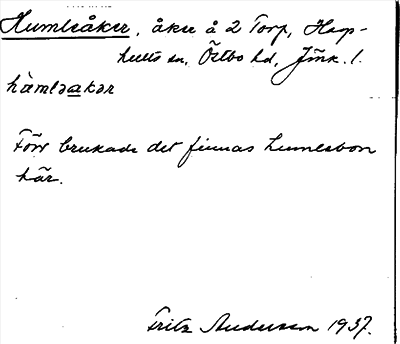 Humleåker, åker å 2 Torp, Hag-
hults sn, Östbo hd, Jmk. l.
hàmləakər
Förr brukade det finnas humlesbon
här.
Fritz Andersson 1937.